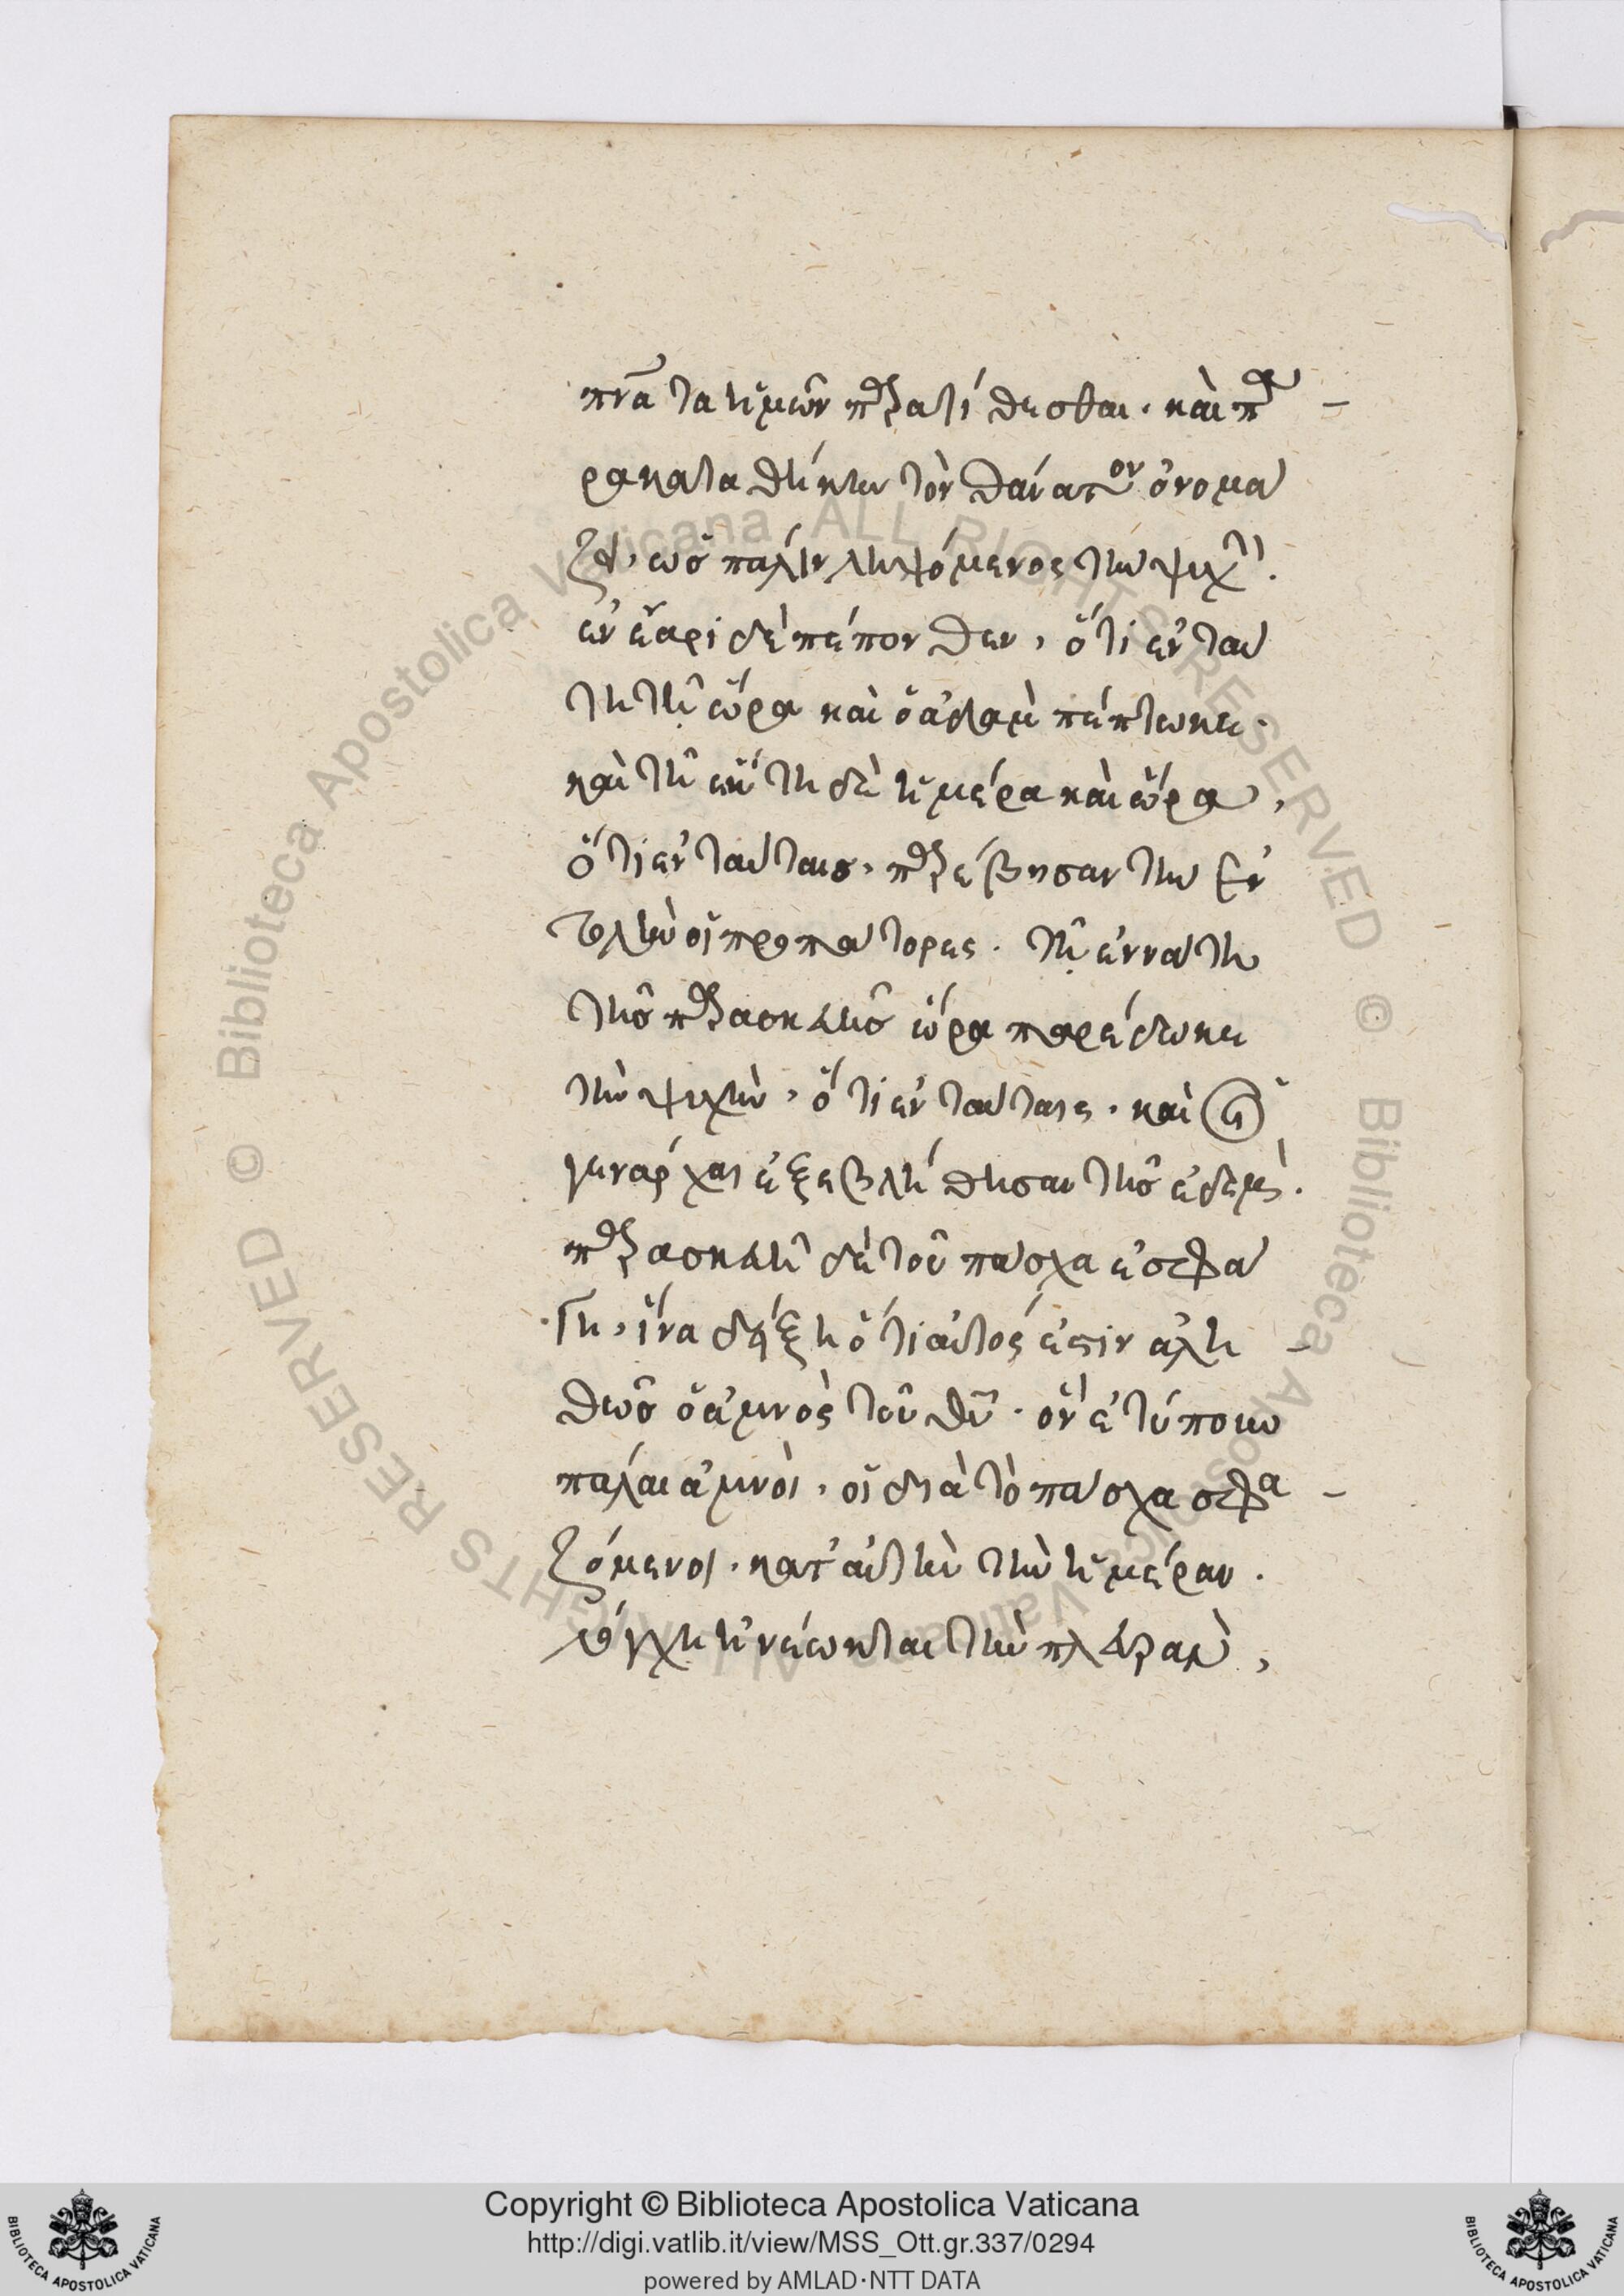 πνα τα ἡμῶν παρατίθεσθαι. καὶ πα
ρακαταθήκην τὸν θάνατον ὀνομά
ζει, ὡς πάλιν ληψόμενος τὴν ψυχήν.
ἐν ἔαρι δὲ πέπονθεν, ὅτι ἐν ταύ
τῃ τῇ ὥρα καὶ ὁ ἀδὰμ πέπτωκε.
καὶ τῇ ἕκτη δὲ ἡμέρα καὶ ὥρα,
ὅτι ἐν ταύταις, παρέβησαν τὴν ἐν
τολὴν οἱ προπάτορες. τῇ ἐννάτη
τῆς παρασκευῆς ὥρα παρέδωκε
τὴν ψυχὴν, ὅτι ἐν ταύταις, καὶ οἱ
γενάρχαι ἐξεβλήθησαν τῆς ἐδέμ.
παρασκευῇ δὲ τοῦ πάσχα ἐσφά
γη, ἵνα δείξη ὅτι αὐτός ἐστιν ἀλη
θῶς ὁ ἀμνὸς τοῦ θῦ. ὃν ἐτύπουν
πάλαι ἀμνοὶ, οἱ διὰ τὸ πάσχα σφα
ζόμενοι. κατ' αὐτὴν τὴν ἡμέραν.
λόγχη ἠνέωκται τὴν πλευρὰν,
Copyright © Biblioteca Apostolica Vaticana
http://digi.vatlib.it/view/MSS_Ott.gr.337/0294
powered by AMLAD·NTT DATA
BIBLIOTECA APOSTOLICA VATICANA
BIBLIOTECA APOSTOLICA VATICANA
© Biblioteca Apostolica Vaticana ALL RIGHTS RESERVED
© Biblioteca Apostolica Vaticana ALL RIGHTS RESERVED